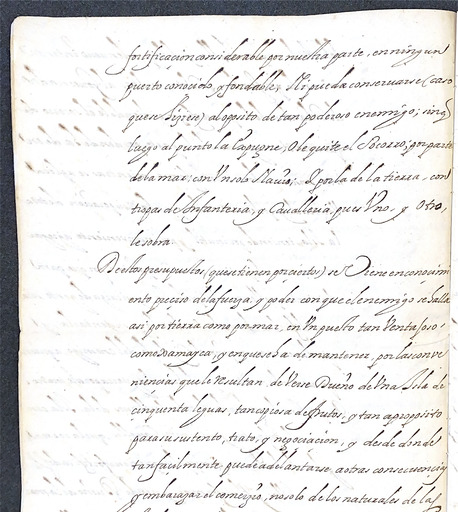 fortificacion considerable por nuestra parte, en ningun
puerto conocido, y fondable; Ni pueda conservarse (caso
que se hiziese) al oppósito de tan poderoso enemigo; sin q̃
luego al punto la Expugne, O le quite el Socorro; por parte
de la mar; con Vn solo Nauio; Y por la de la tierra, con
tropas de Infanteria, y Caualleria, pues Vno, y Otro,
le sobra.
De estos presupuestos (que se tienen por ciertos) se Viene en conocimi
ento preciso de la fuerza, y poder con que el enemigo se halla
asi por tierra como por mar, en Vn puesto tan Ventajoso,
como Xamayca, y en que se ha de mantener, por las conve
niencias que le resultan, de Verse Dueño de Vna Isla de
cinquenta leguas, tan copiosa de frutos, y tan a proposito
para su sustento, trato, y negociacion, y desde donde
tan facilmente puede adelantarse a otras consecuencias
y embarazar el comerzio, no solo de los naturales de las